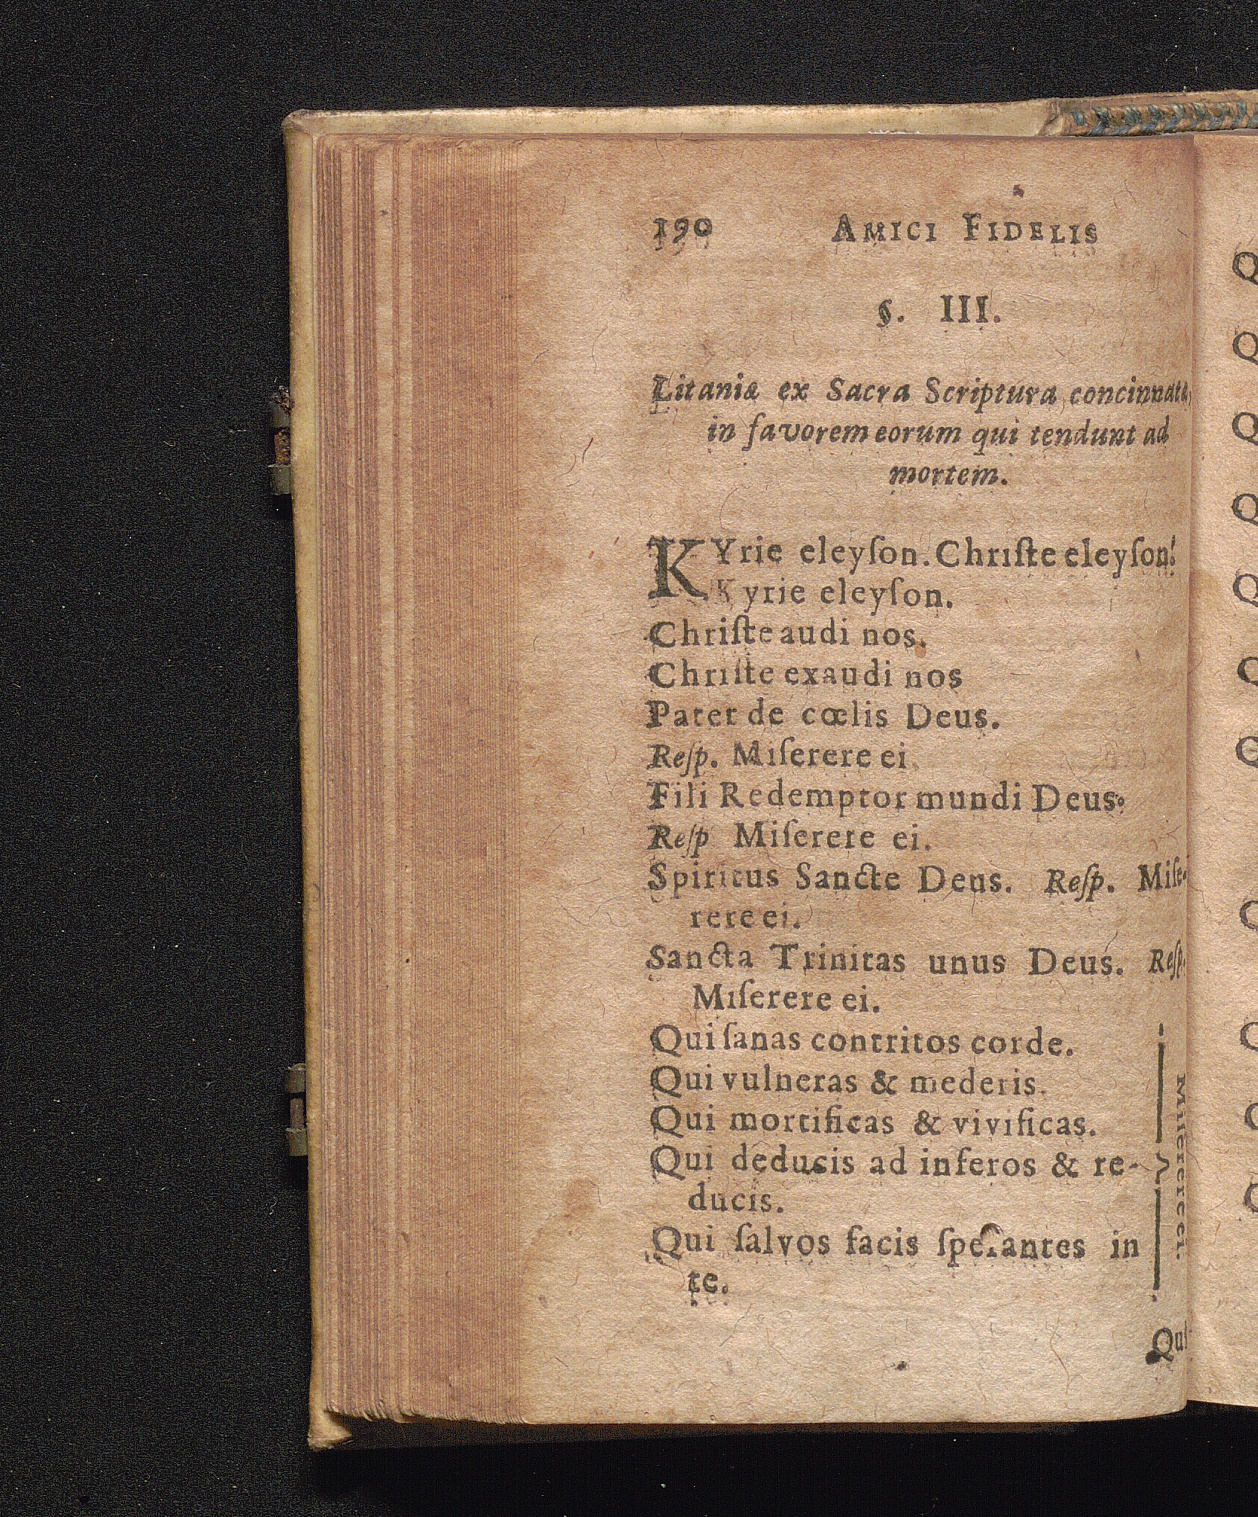 190 AMICI FIDELIS
§. III.
Litaniæ ex Sacra Scriptura concinnatæ,
in favorem eorum qui tendunt ad
mortem.
KYrie eleyſon. Chriſte eleyſon!
Kyrie eleyſon.
Chriſte audi nos.
Chriſte exaudi nos
Pater de cœlis Deus.
Reſp. Miſerere ei.
Fili Redemptor mundi Deus.
Reſp Miſerere ei.
Spiritus Sancte Deus. Reſp. Miſe-
rere ei.
Sancta Trinitas unus Deus. Reſp.
Miſerere ei.
Qui ſanas contritos corde.
Qui vulneras & mederis.
Qui mortificas & vivificas.
Qui deducis ad inferos & re-
ducis.
Qui ſalvos facis ſperantes in
te.
Miſerere ei.
Qui